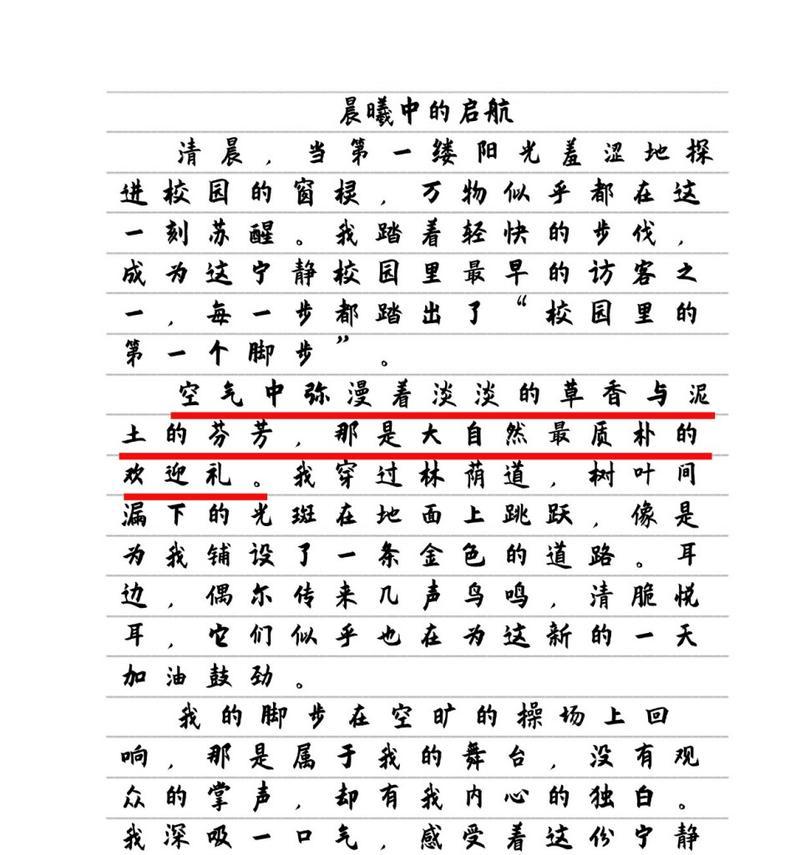 晨曦中的启航
清晨，当第一缕阳光羞涩地探
进校园的窗棂，万物似乎都在这
一刻苏醒。我踏着轻快的步伐，
成为这宁静校园里最早的访客之
一，每一步都踏出了“校园里的
第一个脚步”。
空气中弥漫着淡淡的草香与泥
土的芬芳，那是大自然最质朴的
欢迎礼。我穿过林荫道，树叶间
漏下的光斑在地面上跳跃，像是
为我铺设了一条金色的道路。耳
边，偶尔传来几声鸟鸣，清脆悦
耳，它们似乎也在为这新的一天
加油鼓劲。
我的脚步在空旷的操场上回
响，那是属于我的舞台，没有观
众的掌声，却有我内心的独白。
我深吸一口气，感受着这份宁静